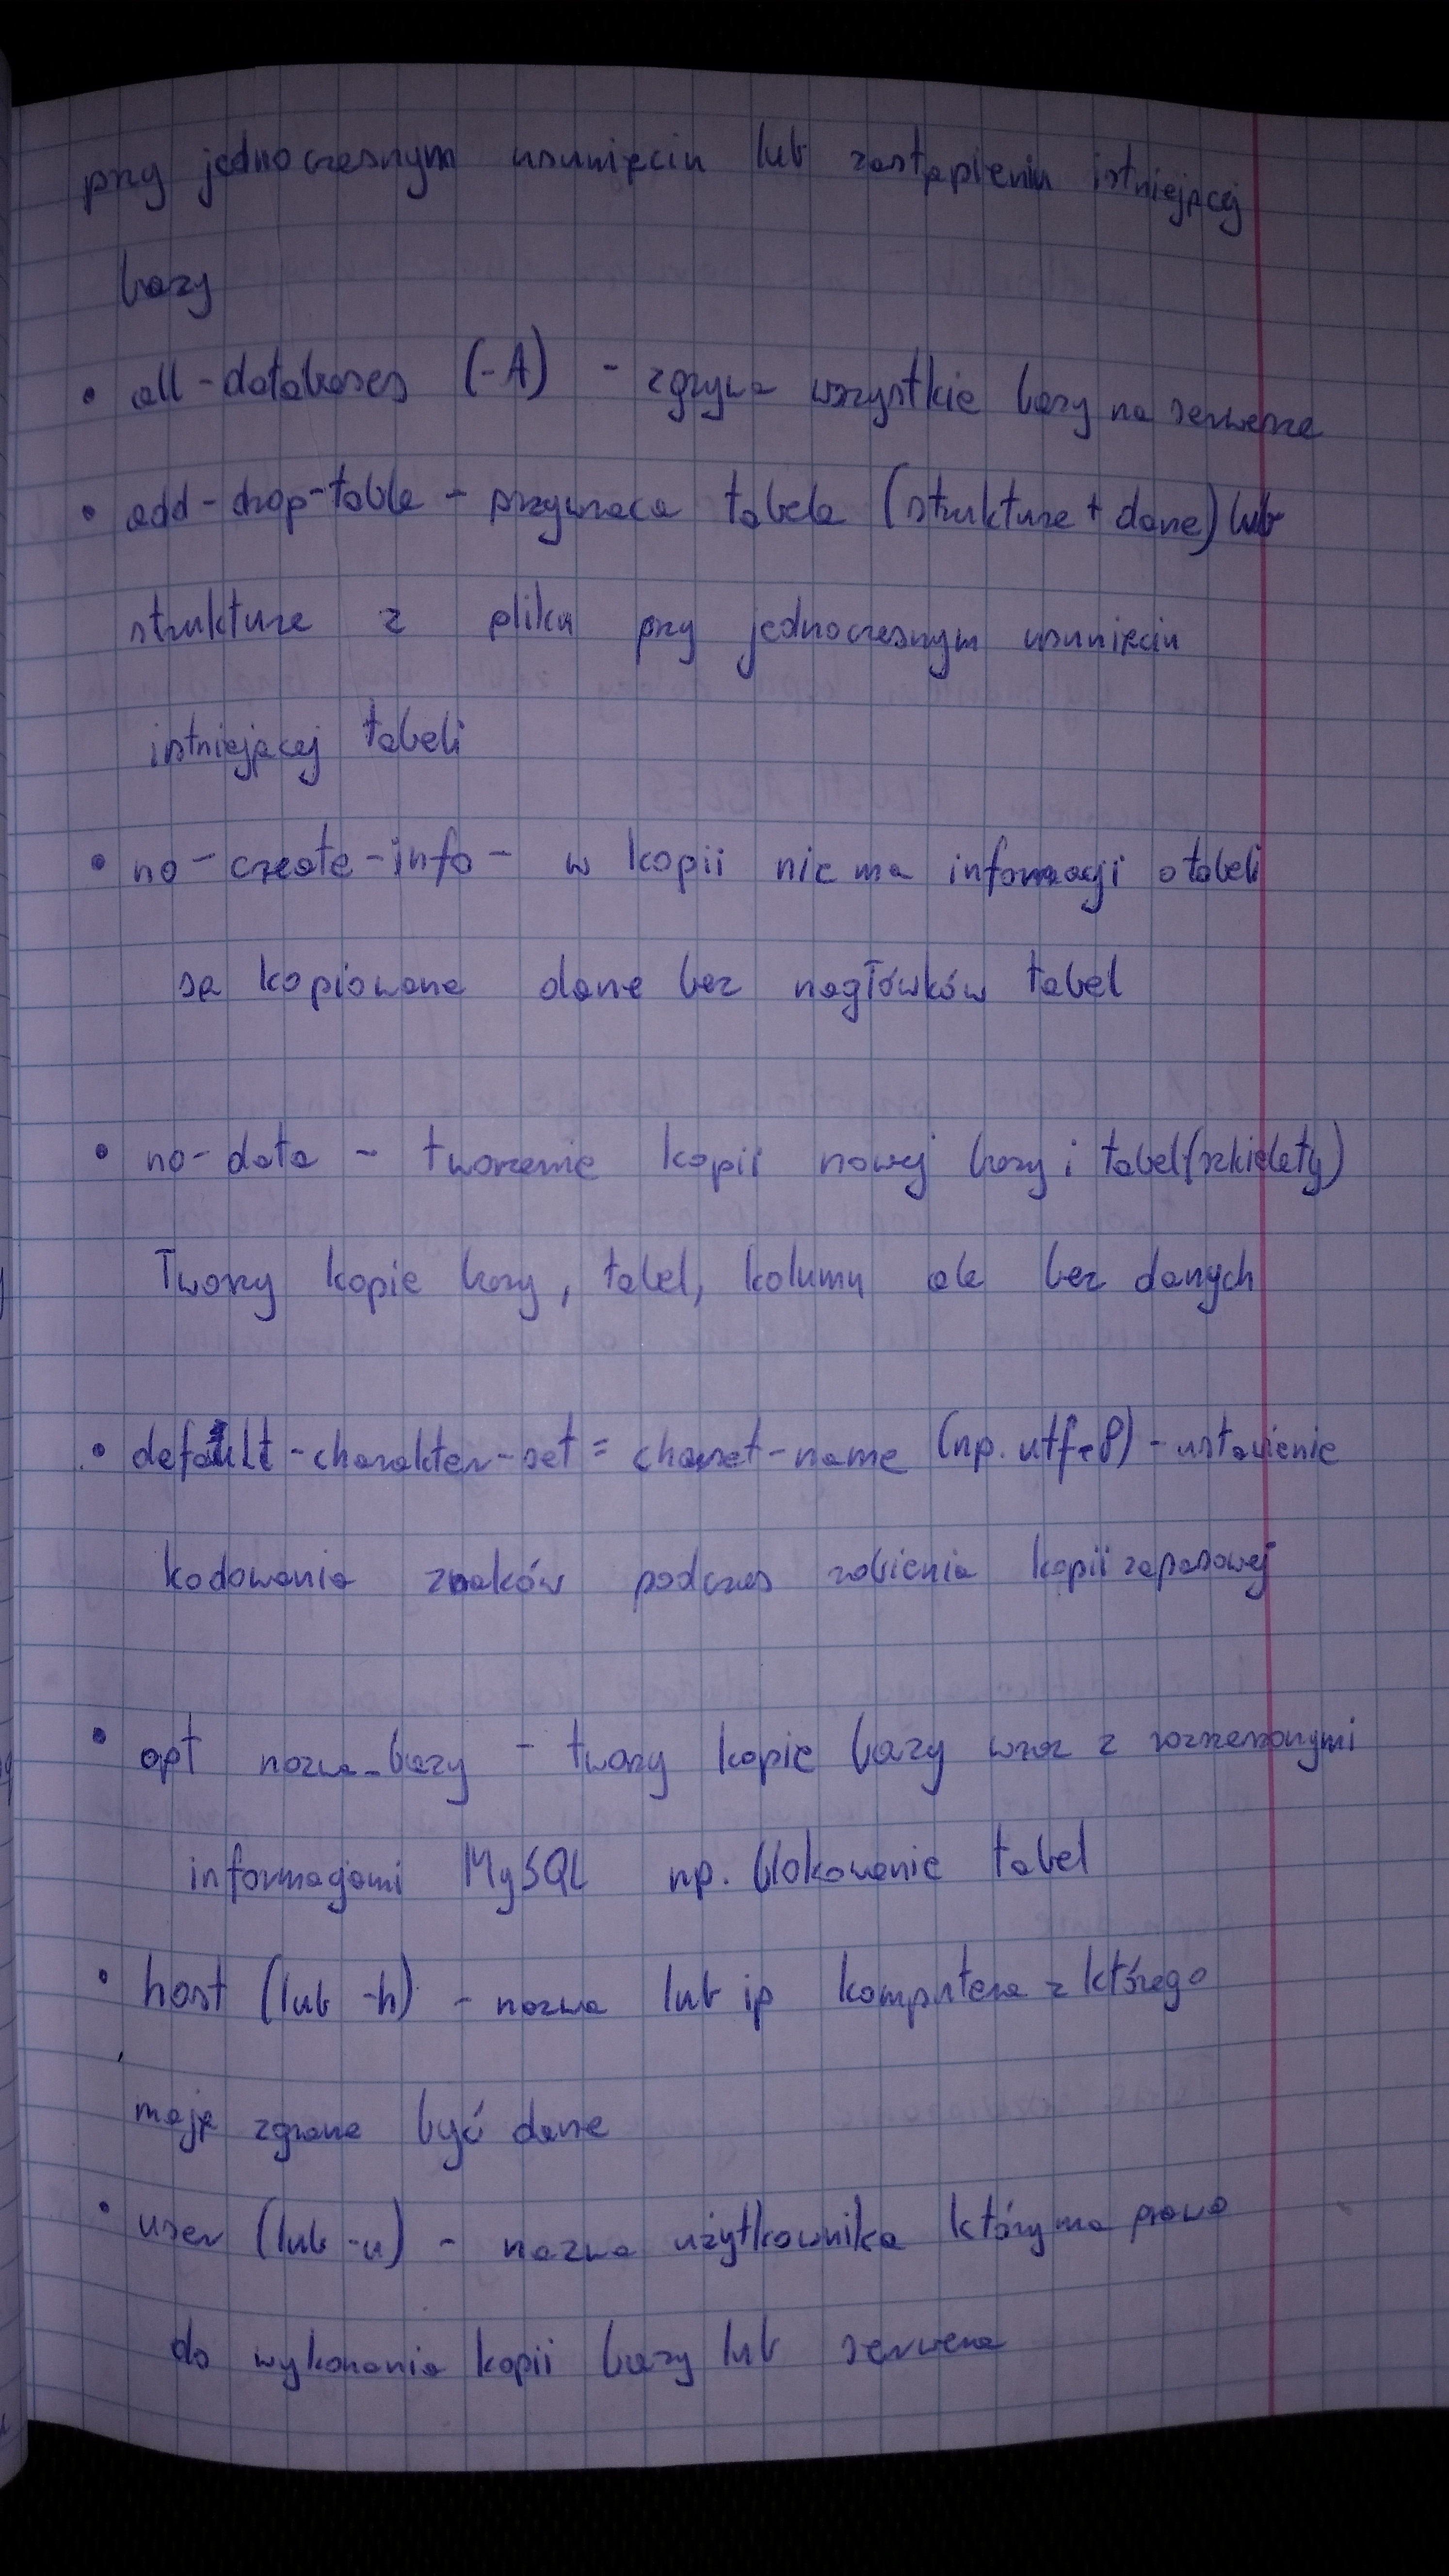 przy jednoczesnym usunięciu lub zastąpieniu istniejącej
bazy
• all-databases (-A) - zgrywa wszystkie bazy na serwerze
• add-drop-table - przywraca tabele (strukture + dane) lub
strukture z pliku przy jednoczesnym usunięciu
istniejącej tabeli
• no-create-info - w kopii nie ma informacji o tabeli
są kopiowane dane bez nagłówków tabel
• no-data - tworzenie kopii nowej bazy i tabel (szkielety)
Tworzy kopie bazy, tabel, kolumn ale bez danych
• default-charakter-set = charset-name (np. utf-8) - ustawienie
kodowania znaków podczas robienia kopii zapasowej
• opt nazwa_bazy - tworzy kopie bazy wraz z rozszerzonymi
informacjami MySQL np. blokowanie tabel
• host (lub -h) - nazwa lub ip komputera z którego
mają zgrane być dane
• user (lub -u) - nazwa użytkownika który ma prawo
do wykonania kopii bazy lub serwera